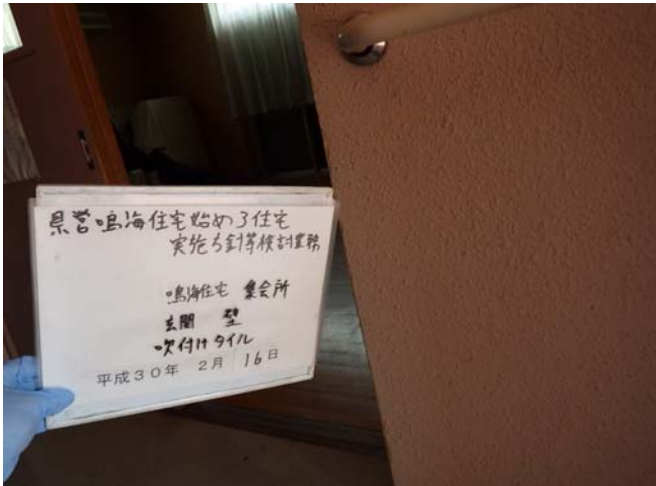 県営鳴海住宅始め3住宅
実施方針等検討業務
鳴海住宅 集会所
玄関 壁
吹付けタイル
平成30年 2月 16日